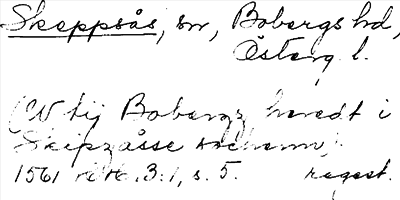 Skeppsås, sn, Bobergs hd,
Österg. l.
(W tij Bobergz heredt i
Skipzåsse sochnn).
1561 3:1, s. 5. regest.